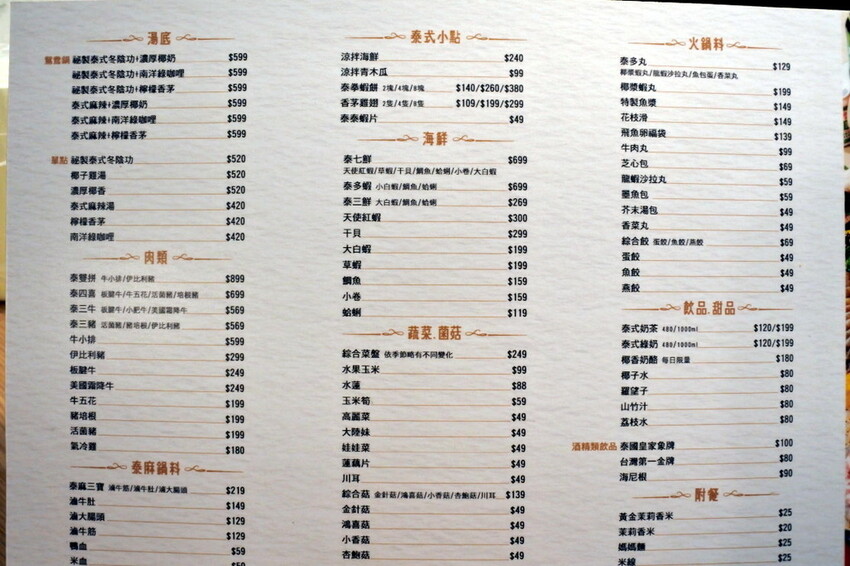 湯底
鴛鴦鍋 祕製泰式冬陰功+濃厚椰奶 $599
祕製泰式冬陰功+南洋綠咖哩 $599
祕製泰式冬陰功+檸檬香茅 $599
泰式麻辣+濃厚椰奶 $599
泰式麻辣+南洋綠咖哩 $599
泰式麻辣+檸檬香茅 $599
單點 祕製泰式冬陰功 $520
椰子雞湯 $520
濃厚椰香 $520
泰式麻辣湯 $420
檸檬香茅 $420
南洋綠咖哩 $420
肉類
泰雙拼 牛小排/伊比利豬 $899
泰四喜 板腱牛/牛五花/活菌豬/培根豬 $699
泰三牛 板腱牛/小肥牛/美國霜降牛 $569
泰三豬 活菌豬/豬培根/伊比利豬 $569
牛小排 $599
伊比利豬 $299
板腱牛 $249
美國霜降牛 $249
牛五花 $199
豬培根 $199
活菌豬 $199
氣冷雞 $180
泰麻鍋料
泰麻三寶 滷牛筋/滷牛肚/滷大腸頭 $219
滷牛肚 $149
滷大腸頭 $129
滷牛筋 $129
鴨血 $59
米血 $59
泰式小點
涼拌海鮮 $240
涼拌青木瓜 $99
泰拳蝦餅 2塊/4塊/8塊 $140/$260/$380
香茅雞翅 2隻/4隻/8隻 $109/$199/$299
泰泰蝦片 $49
海鮮
泰七鮮 $699
天使紅蝦/草蝦/干貝/鯛魚/蛤蜊/小卷/大白蝦
泰多蝦 小白蝦/鯛魚/蛤蜊 $699
泰三鮮 大白蝦/鯛魚/蛤蜊 $269
天使紅蝦 $300
干貝 $299
大白蝦 $199
草蝦 $199
鯛魚 $159
小卷 $159
蛤蜊 $119
蔬菜.菌菇
綜合菜盤 依季節略有不同變化 $249
水果玉米 $99
水蓮 $88
玉米筍 $59
高麗菜 $49
大陸妹 $49
娃娃菜 $49
蓮藕片 $49
川耳 $49
綜合菇 金針菇/鴻喜菇/小香菇/杏鮑菇/川耳 $139
金針菇 $49
鴻喜菇 $49
小香菇 $49
杏鮑菇 $49
火鍋料
泰多丸 $129
椰漿蝦丸/龍蝦沙拉丸/魚包蛋/香菜丸
椰漿蝦丸 $199
特製魚漿 $149
花枝滑 $149
飛魚卵福袋 $139
牛肉丸 $99
芝心包 $69
龍蝦沙拉丸 $59
墨魚包 $59
芥末湯包 $49
香菜丸 $49
綜合餃 蛋餃/魚餃/燕餃 $69
蛋餃 $49
魚餃 $49
燕餃 $49
飲品.甜品
泰式奶茶 480/1000ml $120/$199
泰式綠奶 480/1000ml $120/$199
椰香奶酪 每日限量 $180
椰子水 $80
羅望子 $80
山竹汁 $80
荔枝水 $80
酒精類飲品 泰國皇家象牌 $100
台灣第一金牌 $80
海尼根 $90
附餐
黃金茉莉香米 $25
茉莉香米 $20
媽媽麵 $25
米線 $25